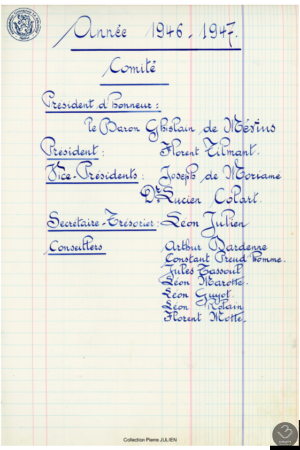 Année 1946-1947.
Comité
President d'honneur :
le Baron Ghislain de Mévius
President : Florent Tilmant.
Vice-Présidents : Joseph de Moriame
Dr Lucien Colart.
Secretaire-Trésorier : Léon Julien
Conseillers Arthur Dardenne
Constant Preud'homme.
Jules Tassoul
Léon Marotte.
Léon Guyot.
Léon Rolain
Florent Motte.
Collection Pierre JULIEN